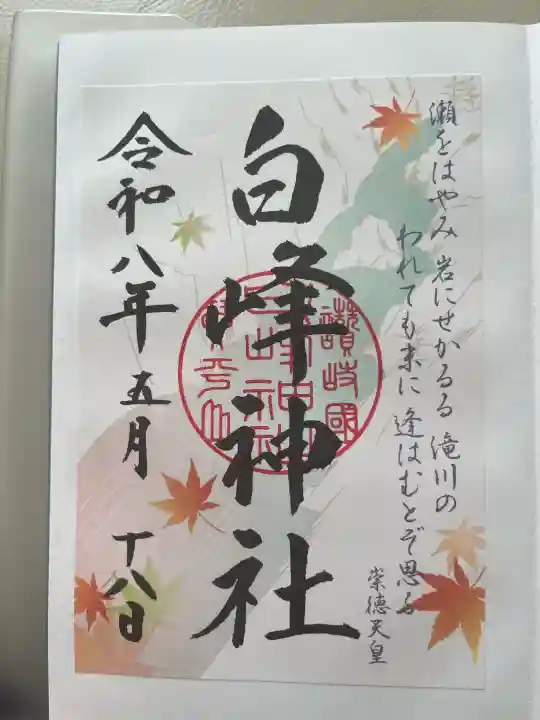 瀬をはやみ 岩にせかるる 滝川の
われても末に 逢はむとぞ思る
崇徳天皇
白峰神社
讃岐國
令和八年五月 十八日